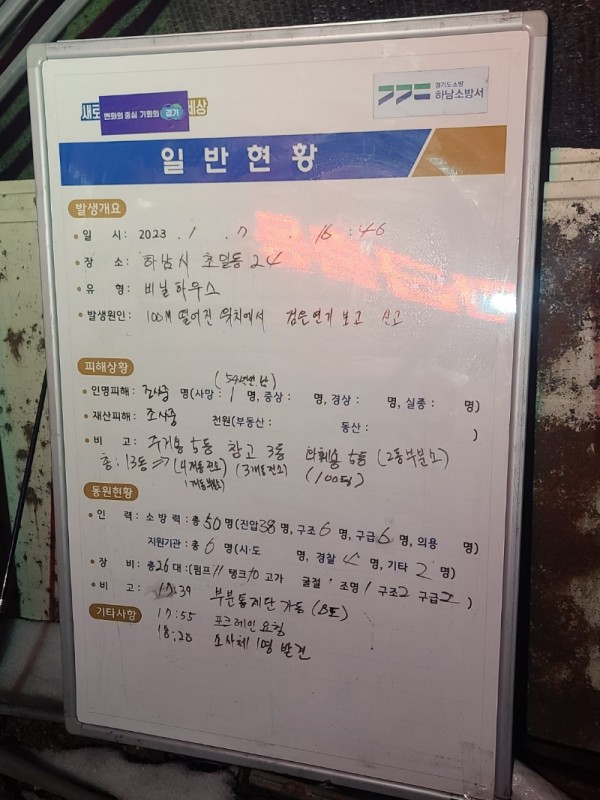 새로 변화의 중심 기회의 경기 세상
경기도소방
하남소방서
일반현황
발생개요
• 일 시 : 2023 . 1 . 7 . 16 : 46
• 장 소 : 하남시 초일동 24
• 유 형 : 비닐하우스
• 발생원인 : 100M 떨어진 위치에서 검은연기 보고 신고
피해상황
(54년생 남)
• 인명피해 : 조사중 명(사망 : 1 명, 중상 : 명, 경상 : 명, 실종 : 명)
• 재산피해 : 조사중 천원(부동산 : 동산 : )
• 비 고 : 주거용 5동 창고 3동 화훼용 5동 (2동 부분소)
총 : 13동 ⇒ (4개동 전소) (3개동 전소) (100평)
(1개동 부분소)
동원현황
• 인 력 : 소방력 : 총 50 명(진압 38 명, 구조 6 명, 구급 6 명, 의용 명)
지원기관 : 총 6 명(시·도 명, 경찰 4 명, 기타 2 명)
• 장 비 : 총 26 대 : (펌프 11 탱크 10 고가 굴절 · 조명 1 구조 2 구급 2 )
• 비 고 : 17:39 부분통제단 가동 (B도)
기타사항
17:55 포크레인 요청
18:20 소사체 1명 발견